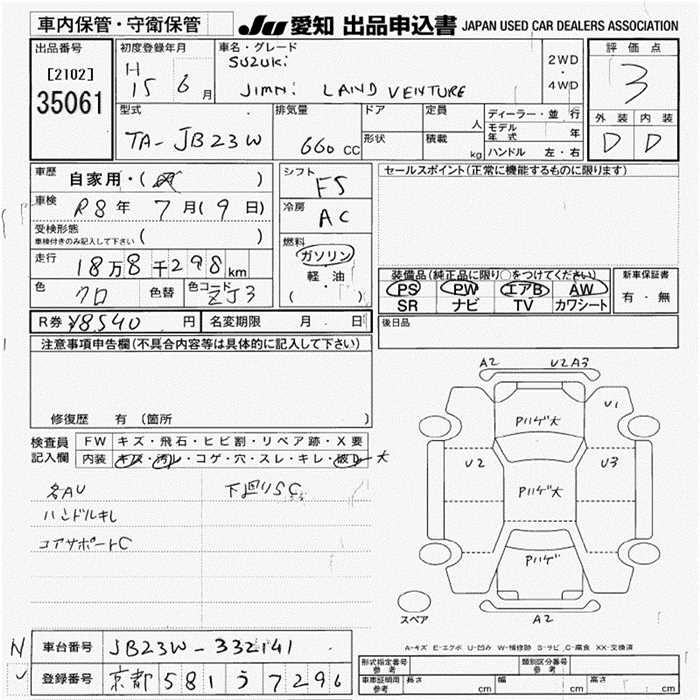 車内保管・守衛保管
JU 愛知 出品申込書 JAPAN USED CAR DEALERS ASSOCIATION
出品番号
[2102]
35061
初度登録年月
H 15 6月
車名・グレード
SUZUKi
JIMNi LAND VENTURE
2WD
・
4WD
評価点
3
外装 内装
D D
型式
TA-JB23W
排気量
660 CC
ドア
形状
定員 人
積載 kg
ディーラー・並行
モデル年式 年
ハンドル 左・右
車歴 自家用・( )
車検 R8年 7月(9日)
受検形態
車検付きのみ記入して下さい ( )
走行 18万8千298km
色 クロ 色替 色コード ZJ3
シフト F5
冷房 AC
燃料
ガソリン
軽油
( ・ )
セールスポイント(正常に機能するものに限ります)
装備品(純正品に限り○をつけてください)
PS PW エアB AW
SR ナビ TV カワシート
新車保証書
有・無
R券 ¥8,540 円 名変期限 月 日
後日品
注意事項申告欄(不具合内容等は具体的に記入して下さい)
修復歴 有(箇所
検査員 FW キズ・飛石・ヒビ割・リペア跡・X要
記入欄 内装 キズ・汚レ・コゲ・穴・スレ・キレ・破レ 大
名AU 下廻りSC
ハンドルキレ
コアサポートC
A2 U2A3
Pハゲ大
U1
U2 Pハゲ大 U3
Pハゲ
A2
スペア
A-キズ E-エクボ U-凹み W-補修跡 S-サビ C-腐食 XX-交換済
N 車台番号 JB23W-332141
U 登録番号 京都 581 う 7296
型式指定番号 参考 類別区分番号 参考
車庫証明用 参考 長さ cm 幅 cm 高さ cm